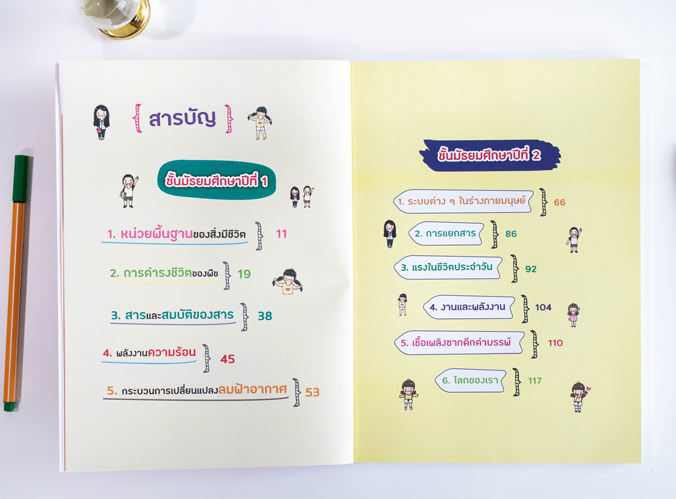 สารบัญ
ชั้นมัธยมศึกษาปีที่ 1
1. หน่วยพื้นฐานของสิ่งมีชีวิต 11
2. การดำรงชีวิตของพืช 19
3. สารและสมบัติของสาร 38
4. พลังงานความร้อน 45
5. กระบวนการเปลี่ยนแปลงลมฟ้าอากาศ 53
ชั้นมัธยมศึกษาปีที่ 2
1. ระบบต่าง ๆ ในร่างกายมนุษย์ 66
2. การแยกสาร 86
3. แรงในชีวิตประจำวัน 92
4. งานและพลังงาน 104
5. เชื้อเพลิงซากดึกดำบรรพ์ 110
6. โลกของเรา 117